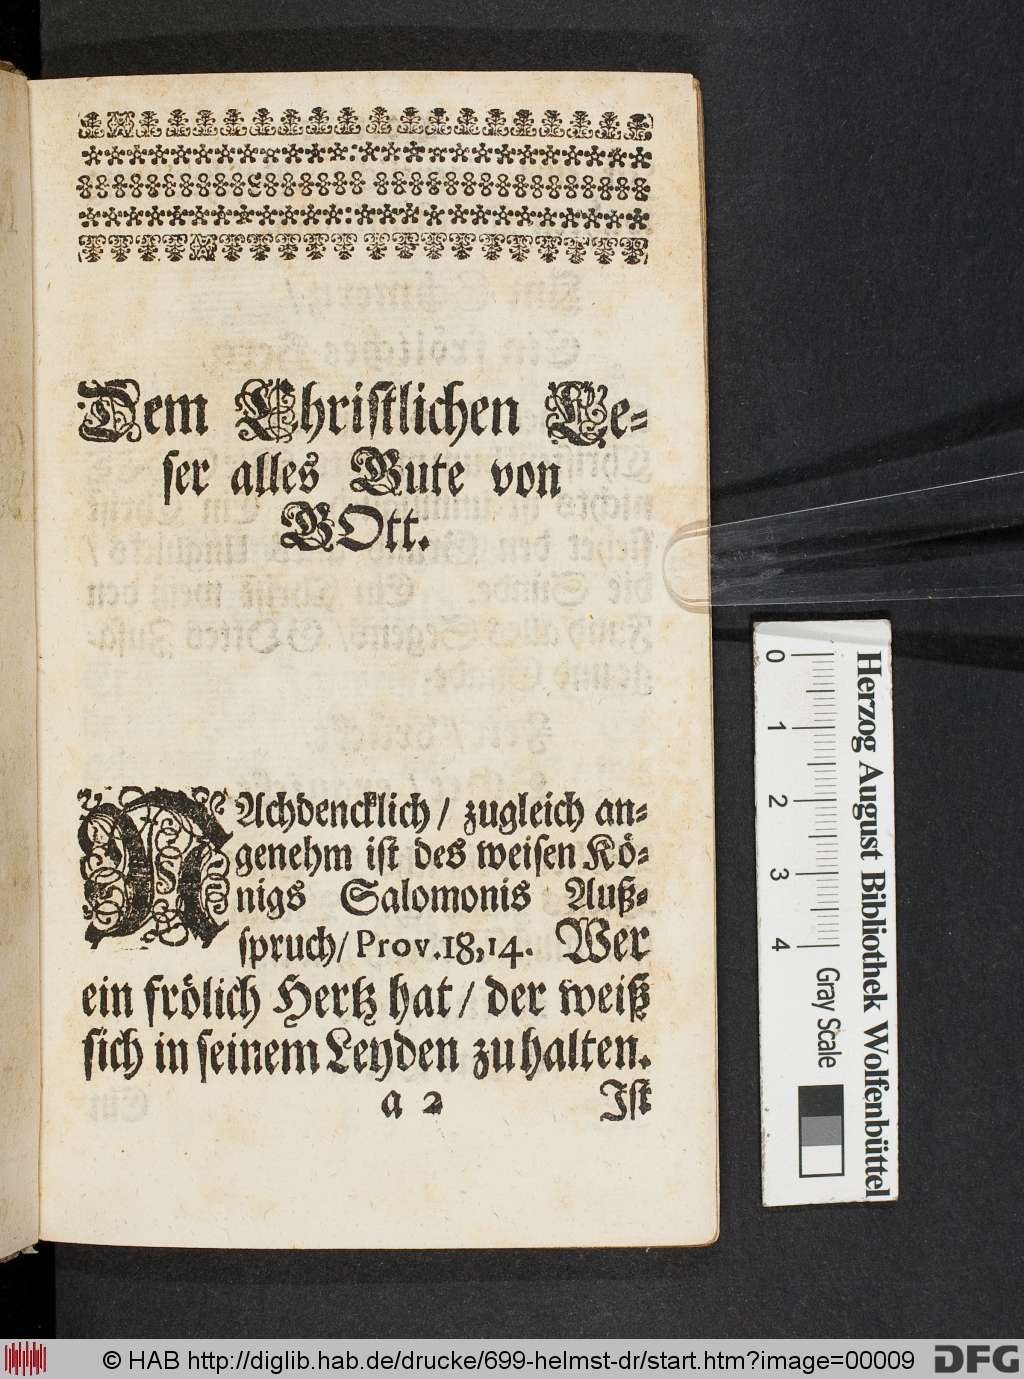 Dem Christlichen Le-
ser alles Gute von
GOtt.
NAchdencklich / zugleich an-
genehm ist des weisen Kö-
nigs Salomonis Auß-
spruch / Prov. 18, 14. Wer
ein frölich Hertz hat / der weiß
sich in seinem Leyden zu halten.
a 2 Ist
Herzog August Bibliothek Wolfenbüttel
0 1 2 3 4 Gray Scale
© HAB http://diglib.hab.de/drucke/699-helmst-dr/start.htm?image=00009
DFG